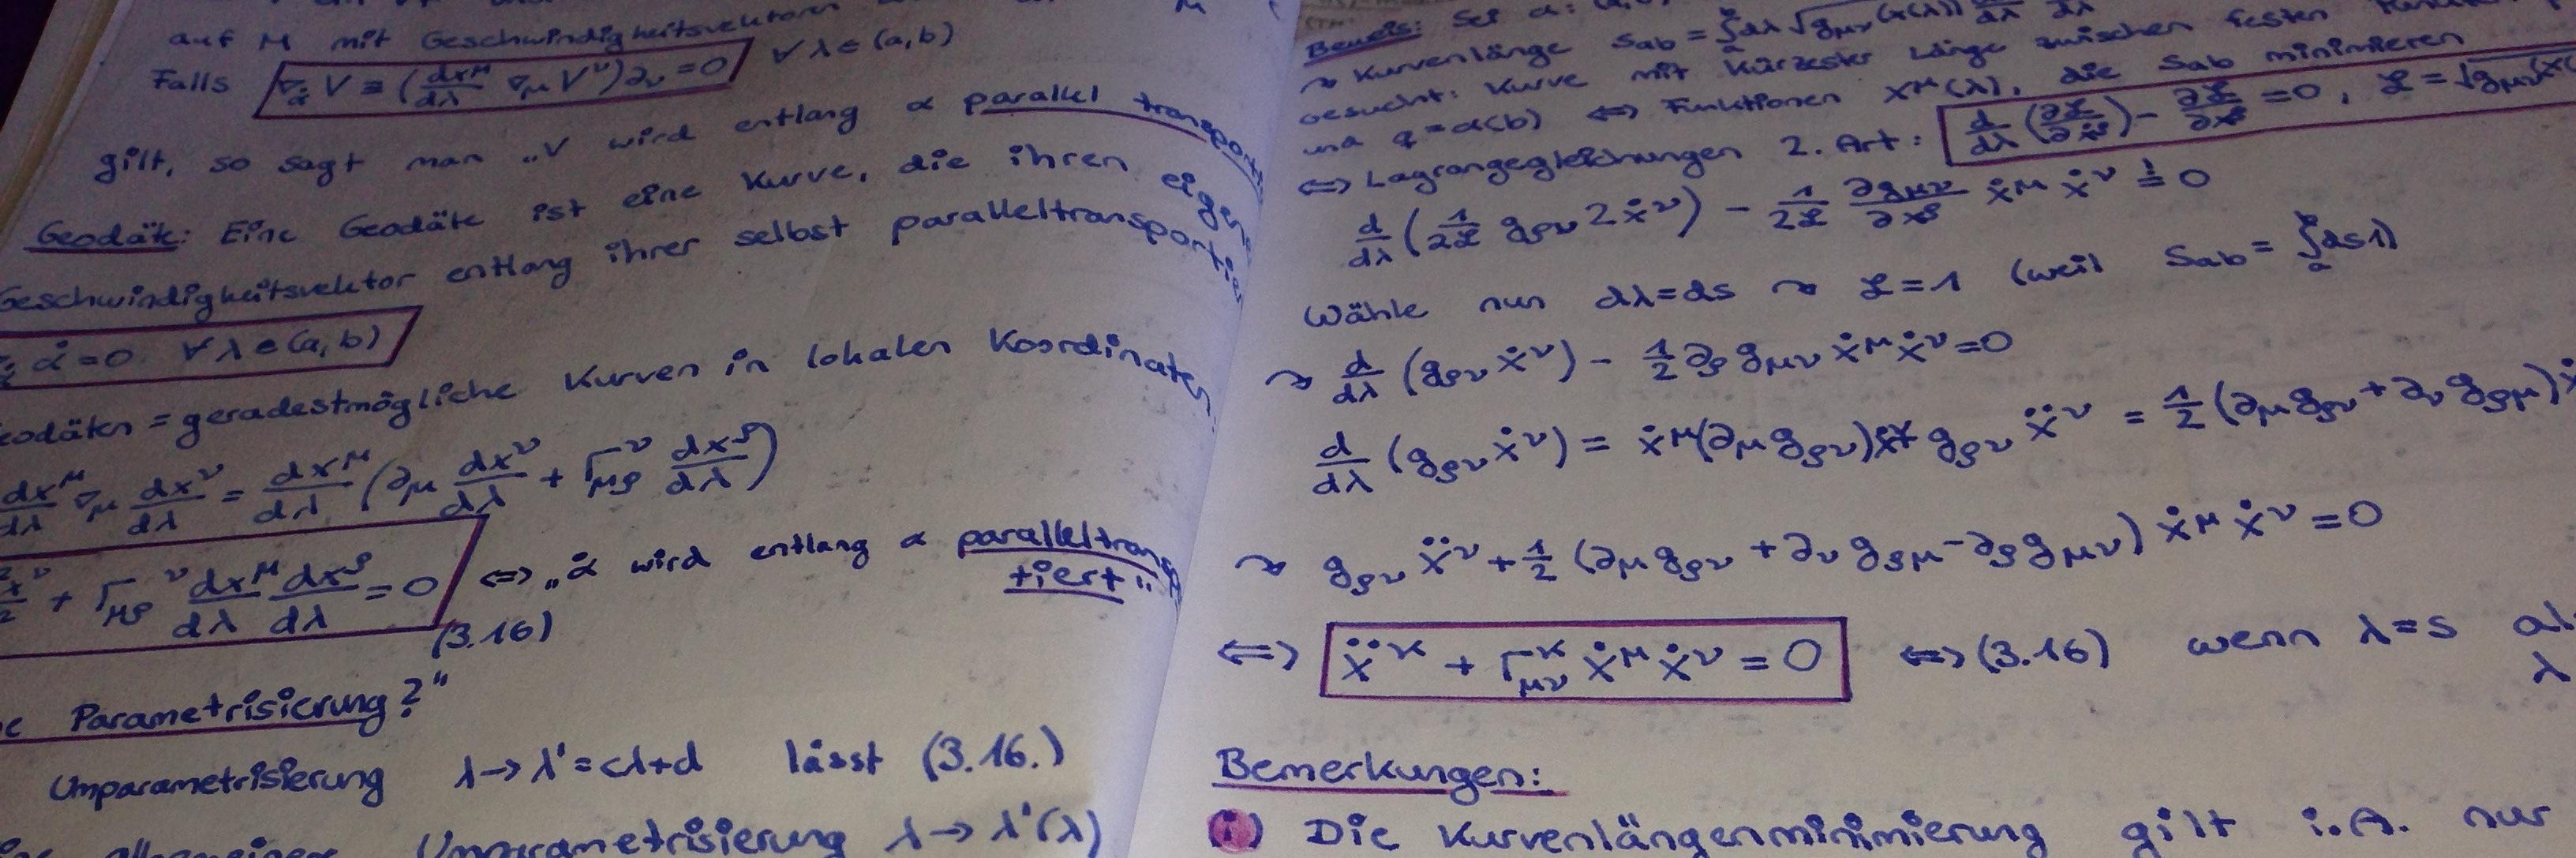 auf M mit Geschwindigkeitsvektoren
Falls ∇_α̇ V ≡ (dx^μ/dλ ∇_μ V^ν)∂_ν = 0 ∀ λ ∈ (a,b)
gilt, so sagt man „V wird entlang α parallel transporti
Geodäte: Eine Geodäte ist eine Kurve, die ihren eigen
Geschwindigkeitsvektor entlang ihrer selbst paralleltransportie
α̇ = 0 ∀ λ ∈ (a,b)
eodäten = geradestmögliche Kurven in lokalen Koordinaten
dx^μ/dλ ∇_μ dx^ν/dλ = dx^μ/dλ (∂_μ dx^ν/dλ + Γ_μρ^ν dx^ρ/dλ)
+ Γ_μρ^ν dx^μ/dλ dx^ρ/dλ = 0 ⇔ „α̇ wird entlang α paralleltransp
tiert“
(3.16)
e Parametrisierung?"
Umparametrisierung λ → λ' = cλ+d lässt (3.16.)
Umparametrisierung λ → λ'(λ)
Beweis: Sei α:
↝ Kurvenlänge S_ab = ∫_a^b dλ √g_μν(x(λ))
gesucht: Kurve mit kürzester Länge zwischen festen
und q = α(b) ⇔ Funktionen x^μ(λ), die S_ab minimieren
⇔ Lagrangegleichungen 2. Art: d/dλ (∂ℒ/∂ẋ^ρ) − ∂ℒ/∂x^ρ = 0, ℒ = √g_μν(x(
d/dλ (1/2ℒ g_ρν 2ẋ^ν) − 1/2ℒ ∂g_μν/∂x^ρ ẋ^μ ẋ^ν != 0
Wähle nun dλ=ds ↝ ℒ=1 (weil S_ab = ∫_a^b ds 1)
↝ d/dλ (g_ρν ẋ^ν) − 1/2 ∂_ρ g_μν ẋ^μ ẋ^ν = 0
d/dλ (g_ρν ẋ^ν) = ẋ^μ(∂_μ g_ρν)ẋ^ν + g_ρν ẍ^ν = 1/2 (∂_μ g_ρν + ∂_ν g_ρμ) ẋ
↝ g_ρν ẍ^ν + 1/2 (∂_μ g_ρν + ∂_ν g_ρμ − ∂_ρ g_μν) ẋ^μ ẋ^ν = 0
⇔ ẍ^κ + Γ_μν^κ ẋ^μ ẋ^ν = 0 ⇔ (3.16) wenn λ=s
λ
Bemerkungen:
i) Die Kurvenlängenminimierung gilt i.A. nur